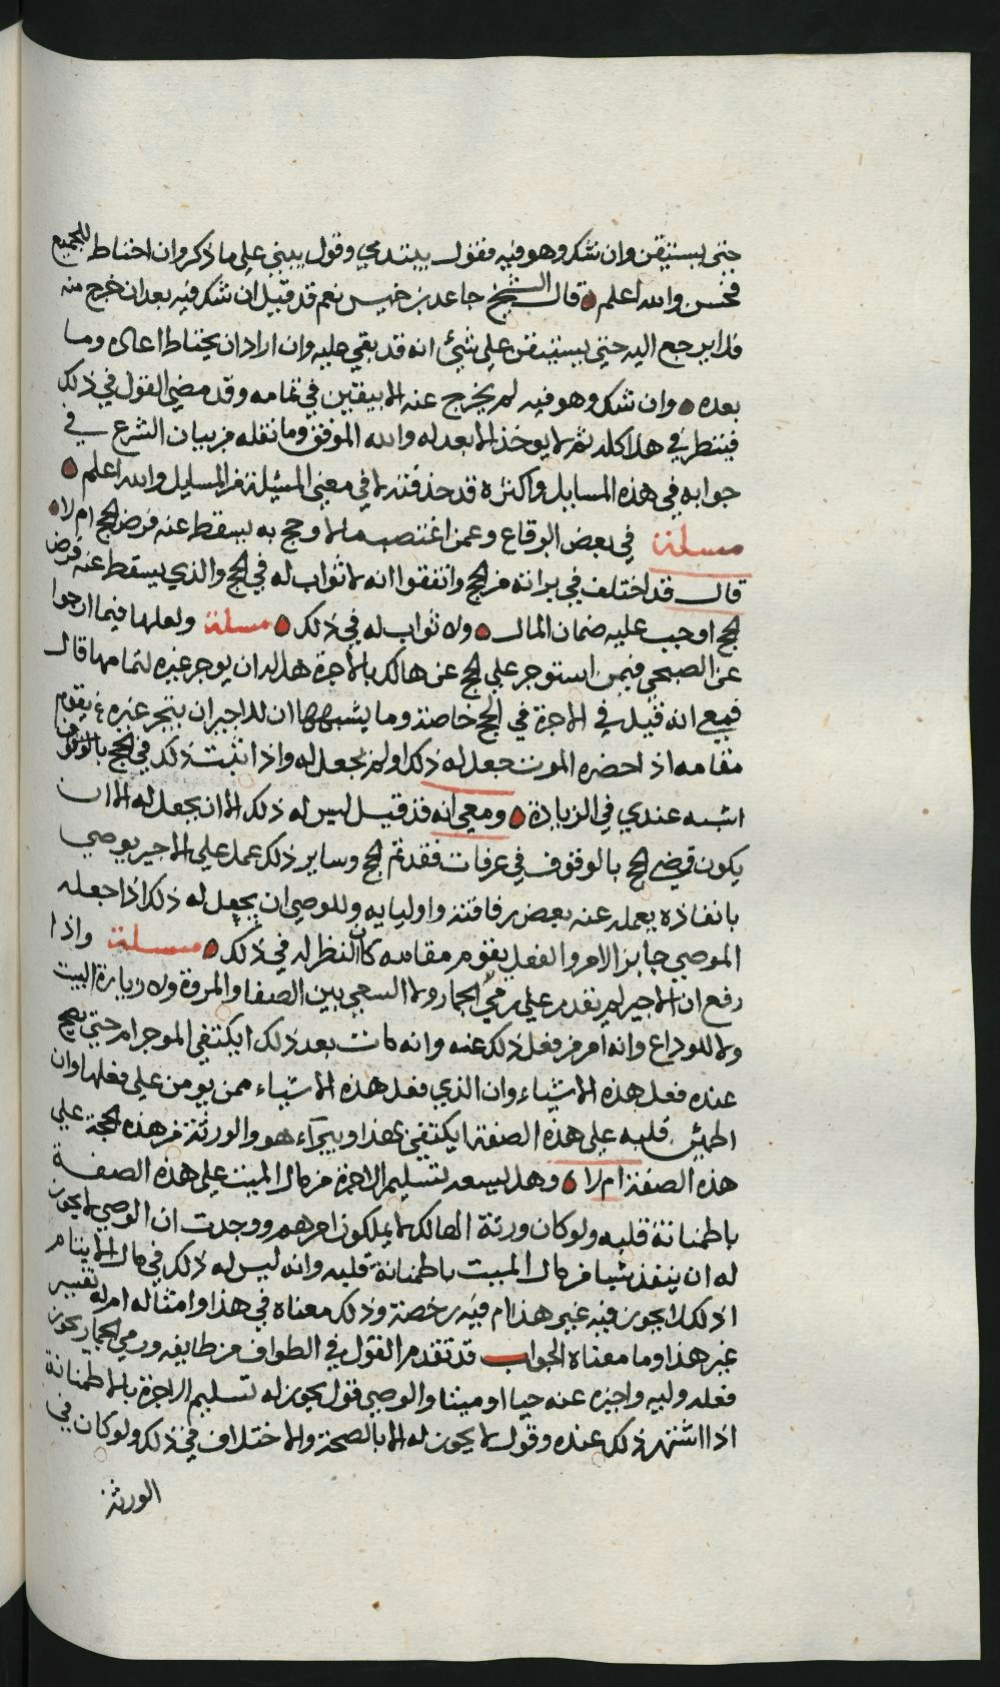 حتى يستيقن وان شك وهو فيه فقول يبتدي وقول يبني على ما ذكر وان احتاط للجميع
فحسن والله اعلم قال الشيخ جاعد بن خميس نعم قد قيل ان شك فيه بعد ان خرج منه
فلا يرجع اليه حتى يستيقن على شيء انه قد بقي عليه وان اراد ان يحتاط اعاده وما
بعده وان شك وهو فيه لم يخرج عنه الا بيقين في تمامه وقد مضى القول في ذلك
فينظر في هذا كله ثم لا يوخذ الا بعدله والله الموفق وما نقله من بيان الشرع في
جوابه في هذه المسايل واكثره قد حذفته لا في معنى المسئلة من المسايل والله اعلم
مسئلة في بعض الرقاع وعمن اغتصب مالا وحج به يسقط عنه فرض الحج ام لا
قال قد اختلف في براته من الحج واتفقوا انه لا ثواب له في الحج والذي يسقط عنه فرض
الحج اوجب عليه ضمان المال ولا ثواب له في ذلك مسئلة ولعلها فيما ارجوا
عن الصبحي فيمن استوجر على الحج عن هالك بالاجرة هل له ان يوجر غيره لتمامها قال
فمعي انه قيل في الاجرة في الحج خاصة وما يشبهها ان للاجير ان يتجر غيره يقوم
مقامه اذا حضره الموت جعل له ذلك او لم يجعل له واذا ثبت ذلك في الحج بالوقوف
اشبه عندي في الزيادة ومعي انه قد قيل ليس له ذلك الا ان يجعل له الا ان
يكون قد مضى الحج بالوقوف في عرفات فقد تم الحج وساير ذلك عمل على الاجير يوصي
بانفاذه يعمله عنه بعض رفاقته واوليايه وللوصي ان يجعل له ذلك اذا جعله
الموصي جايز الامر والفعل يقوم مقامه كان النظر له في ذلك مسئلة واذا
رفع ان الاجير لم يقدر على رمي الجمار ولا السعي بين الصفا والمروة ولا زيارة البيت
ولا للوداع وانه امر من فعل ذلك عنه وانه مات بعد ذلك ايكتفي الموجر ام حتى يصح
عنده فعل هذه الاشياء وان الذي فعل هذه الاشياء ممن يومن على فعلها وان
اطمئن قلبه على هذه الصفة ايكتفي بهذا ويبرآء هو والورثة من هذه الحجة على
هذه الصفة ام لا وهل يسعه تسليم الاجرة من مال الميت على هذه الصفة
باطمئنانة قلبه ولو كان ورثة الهالك لا يملكون امرهم ووجدت ان الوصي لا يجوز
له ان ينفذ شيا من مال الميت باطمئنانة قلبه وانه ليس له ذلك في مال الايتام
اذلك لا يجوز فيه غير هذا ام فيه رخصة وذلك معناه في هذا وامثاله ام له تفسير
غير هذا وما معناه الجواب قد تقدم القول في الطواف من طايفه ورمي الجمار يجوز
فعله وليه واجيره عنه حيا او ميتا والوصي قول يجوز له تسليم الاجرة بالاطمئنانة
اذا اشتهر ذلك عنده وقول لا يجوز له الا بالصحة والاختلاف في ذلك ولو كان في
الورثة